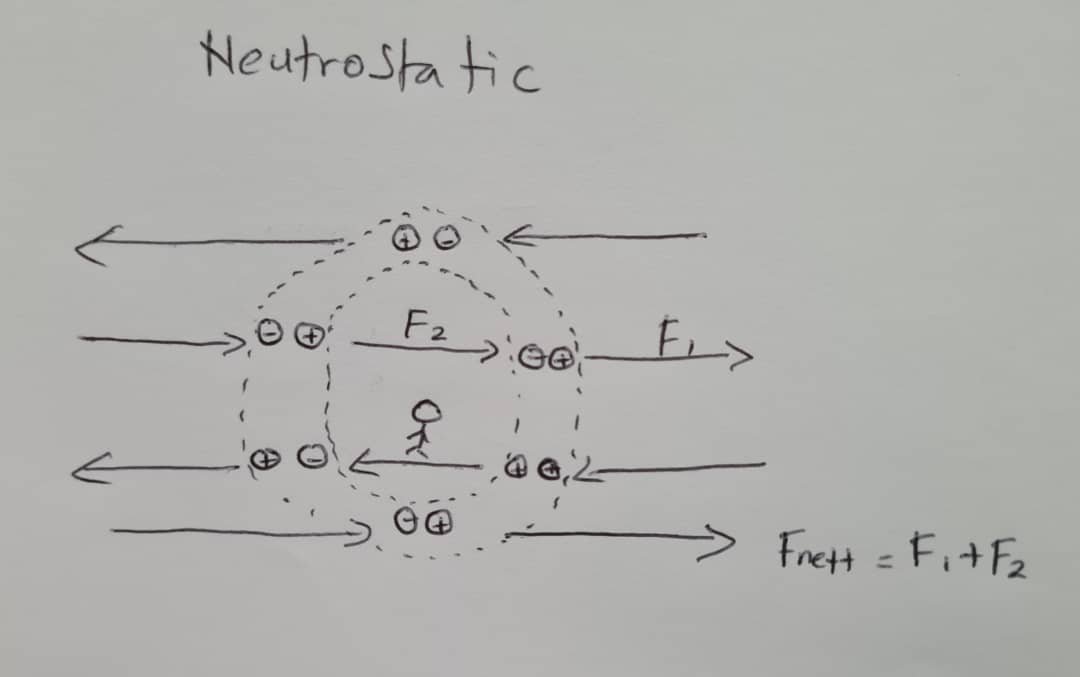 Neutrostatic
⊕ ⊖
⊖ ⊕ F₂ ⊖⊕ F₁
⊕ ⊖ ⊕ ⊖
⊖⊕
Fnett = F₁+F₂